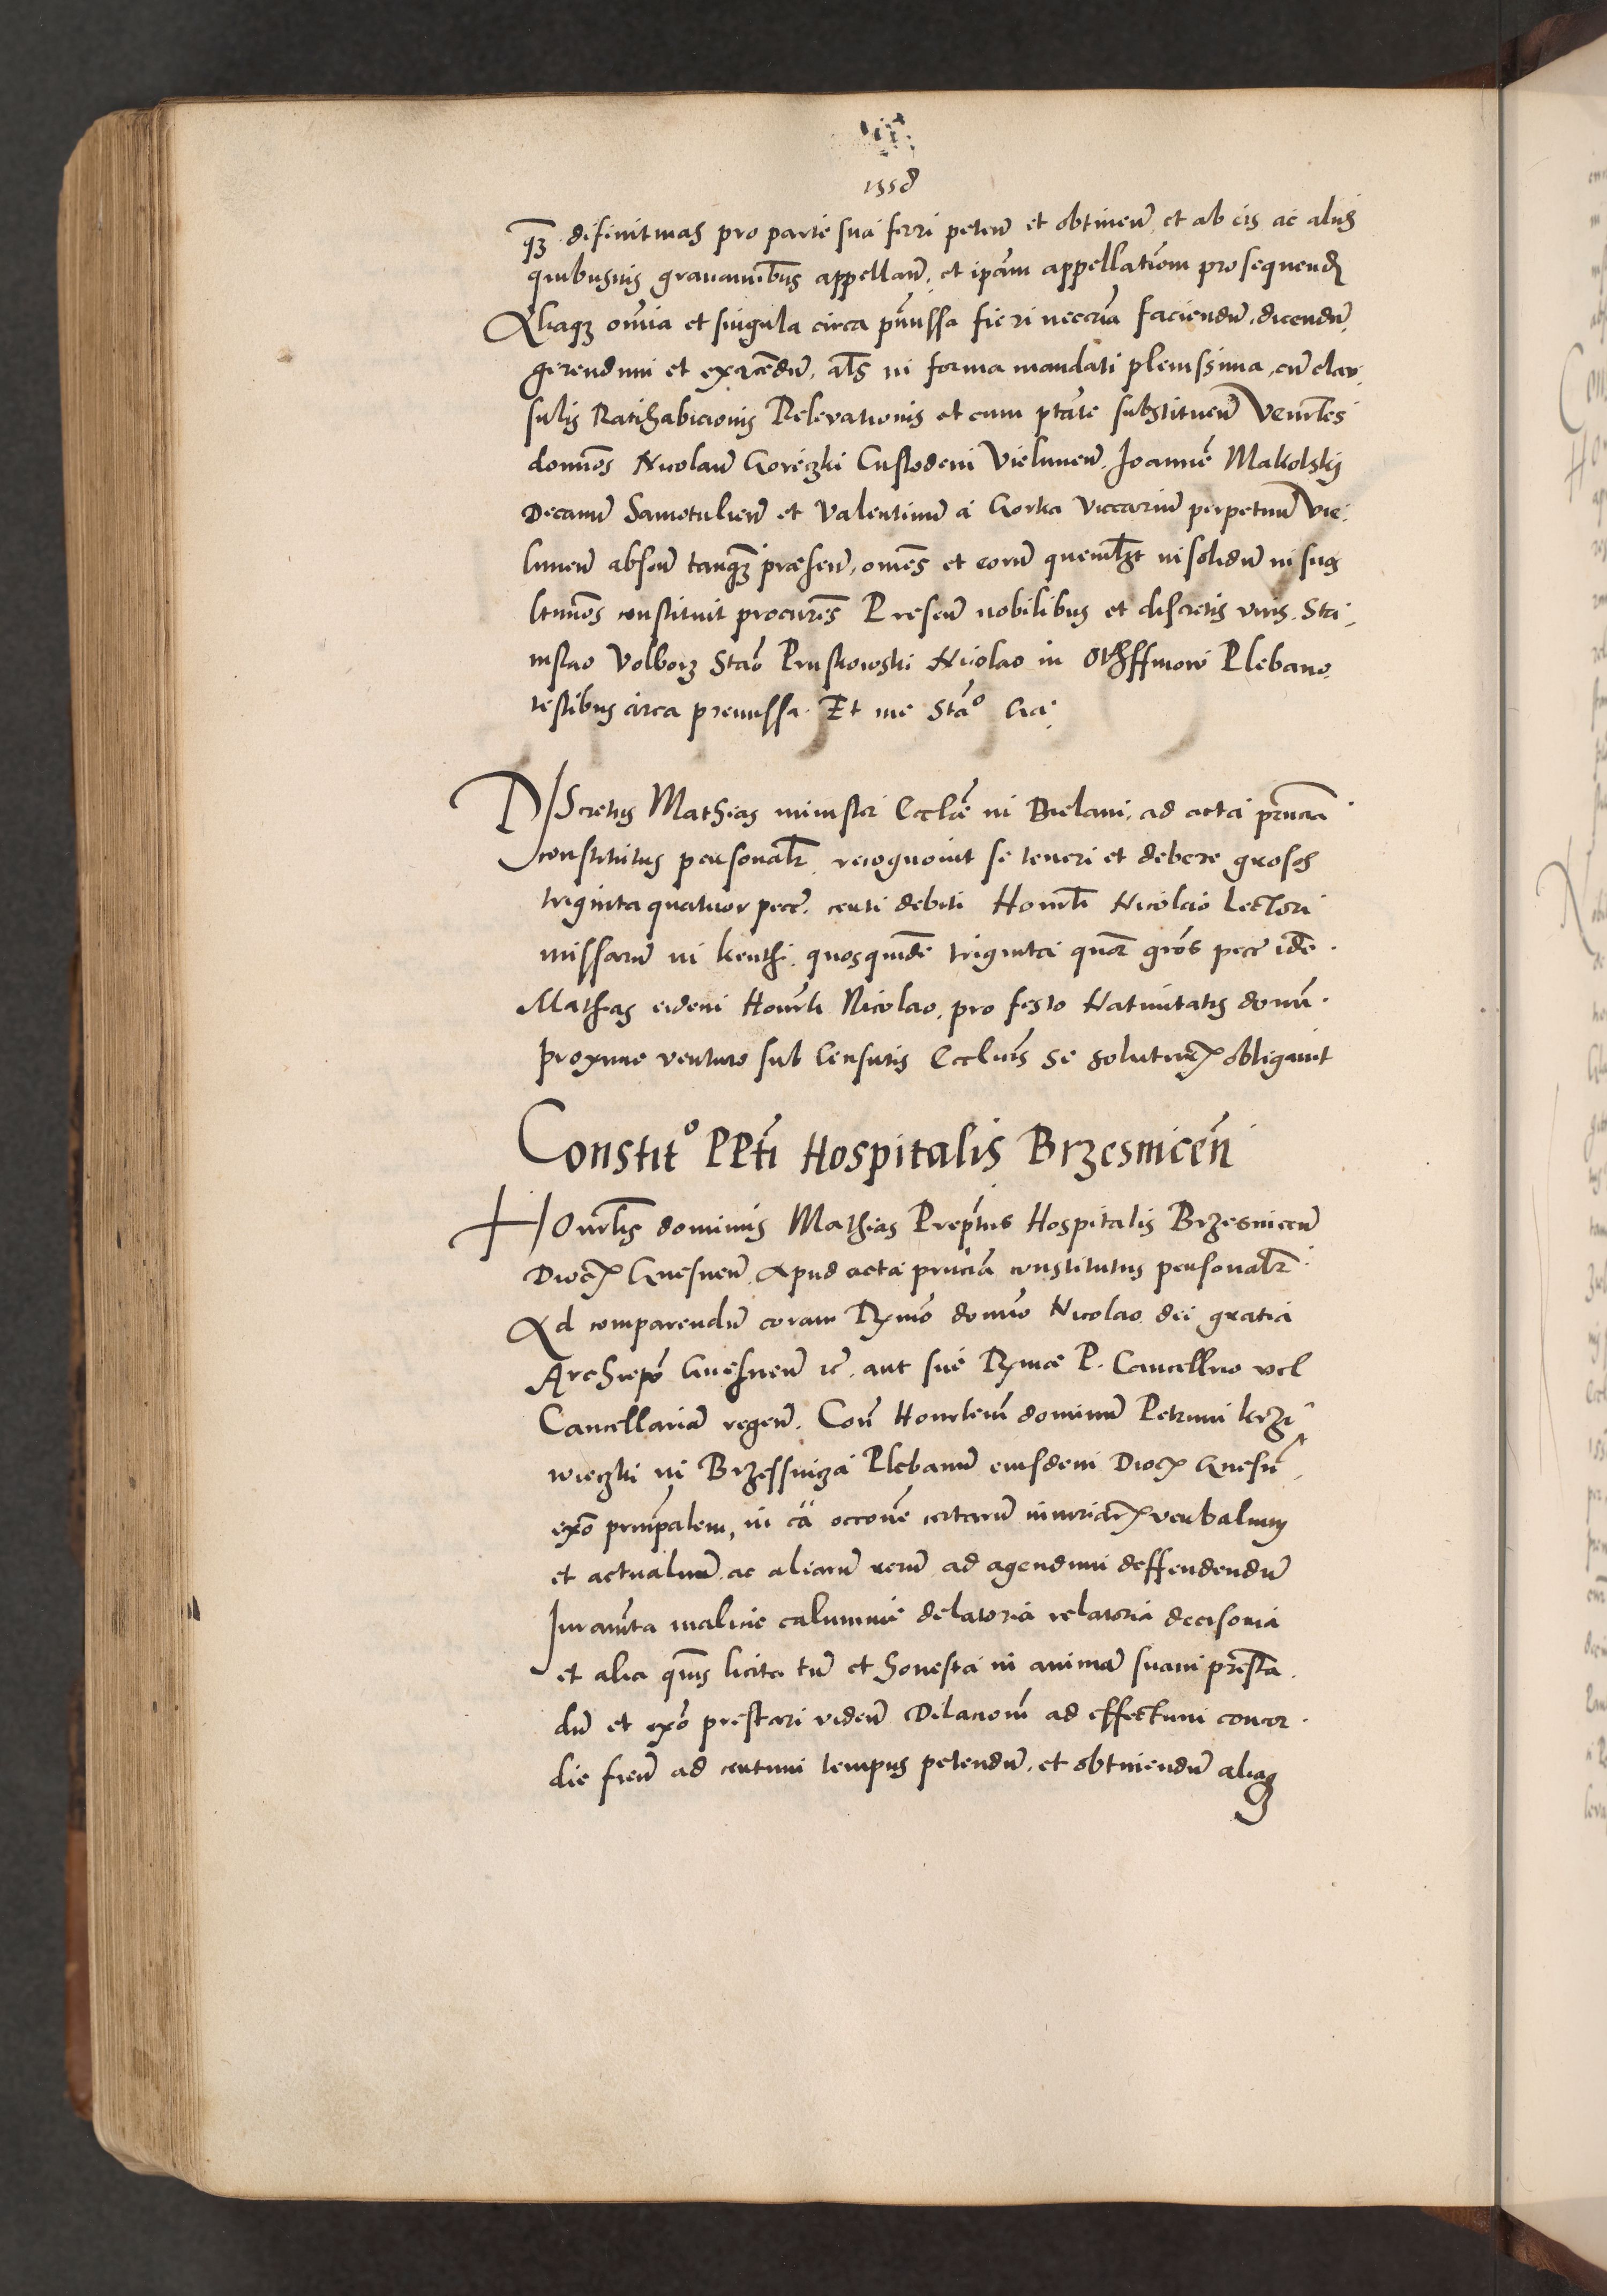 1558
q̃ꝫ difinitiuas pro parte sua ferri peteñ et obtineñ, et ab eis ac alijs
quibusuis grauamiñbus appellañ, et ip̃am appellatiõem prosequend
Aliaqꝫ om̃ia et singula circa p̃missa fieri neccr̃ia faciendũ, dicendũ,
gerendum et exercẽdũ, al̃s in forma mandati plenissima, cũ clau
sulis Ratihabicionis Relevationis et cum ptãte substitueñ Veñrl̃es
domĩos Nicolaũ Goreczki Custodem Vielunieñ. Joannẽ Makolskij
Decanũ Samotulieñ et Valentinũ a Gorka viccariũ perpetuũ Vie
lunieñ absẽn tanqꝫ̃ præseñ, omẽs et eorũ queml̃ꝫt insolidũ in suos
ltimõs constituit procurẽs Preseñ nobilibus et discretis viris. Sta
nislao Volborz Staõ Pruskowski Nicolao in Plebano
testibus circa premissa. Et me Stãº Ga:
DIScretus Mathias minister Eccl̃æ in Bielani, ad acta pr̃ncia
constitutus personal̃r, recognouit se teneri et debere grosos
triginta quatuor pecc̃. certi debiti Honorl̃i Nicolao Lectori
missarũ in kenthi. quosquidẽ triginta quãor gros pecc̃ idẽ
Mathias eidem Honorl̃i Nicolao, pro festo Natiuitatis domĩ
proxime venturo sub Censuris Eccl̃ius se soluturꝝ obligauit
Constitº PPt̃i Hospitalis Brzesnicen̄
HOnorl̃is dominus Mathias Prep̃tus Hospitalis Brzesniceñ
Diocꝭ Gnesneñ. Apud acta pr̃ncia constitutus personal̃r
Ad comparendũ coram Rx̃mo domĩo Nicolao dei gratia
Archiep̃o Gnesneñ ic̃. aut sue Rx̃mæ P. Cancellrio vel
Cancellariã regeñ. Con̄ Honorlem dominũ Petrum krzi
wieczki in Brzessnicza Plebanũ eiusdem Diocꝭ Gnesñ
exõ prin̄palem, in cã occõne certarũ iniuriarꝝ verbalium
et actualiũ ac aliarũ rerũ ad agendum deffendendũ
Juram̃ta malicie calumnie delatoria relatoria decisoria
et alia quẽuis licita tũ et honesta in animã suam prest̃a
dũ et exõ prestari videñ Dilacioñ ad effectum concor
die fieñ ad certum tempus petendũ, et obtinendũ aliaqꝫ